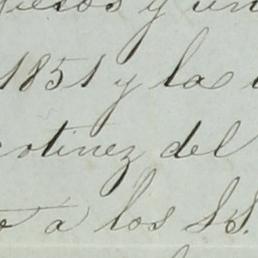 pesos y un
1851 y la
rtinez del
á los SS.